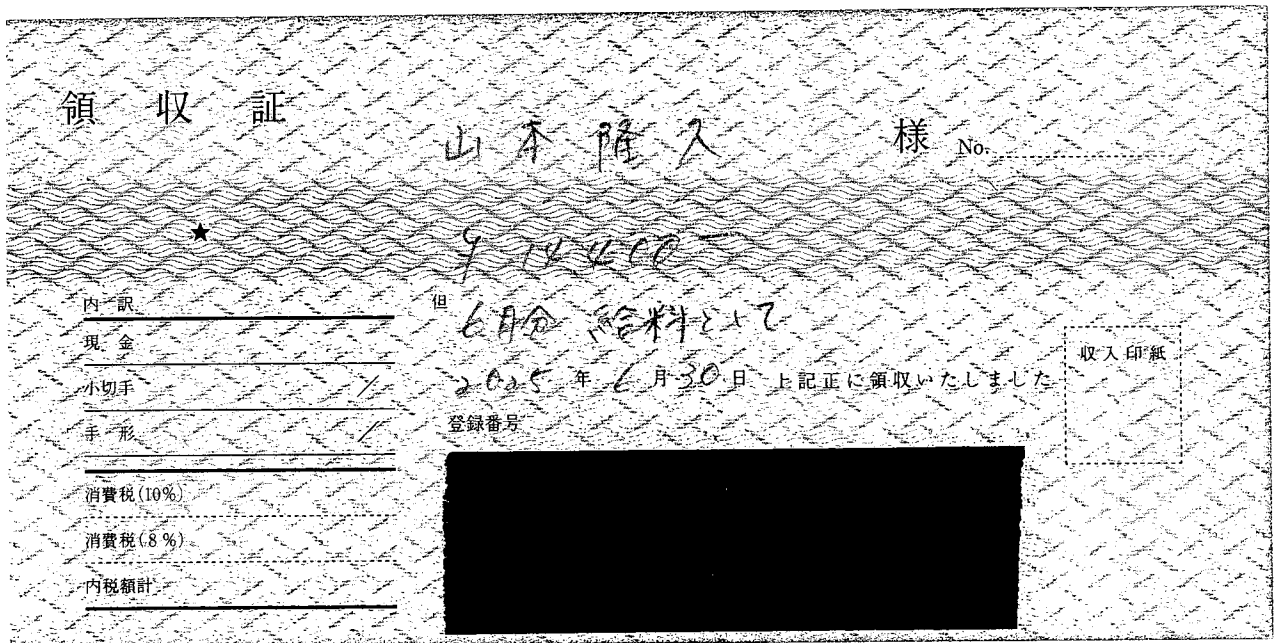 領 収 証
山本隆久 様 No.
★
¥14400-
内 訳
現 金
小切手 /
手 形 /
消費税(10%)
消費税(8%)
内税額計
但 6月分 給料として
2025年6月30日 上記正に領収いたしました
登録番号
収入印紙